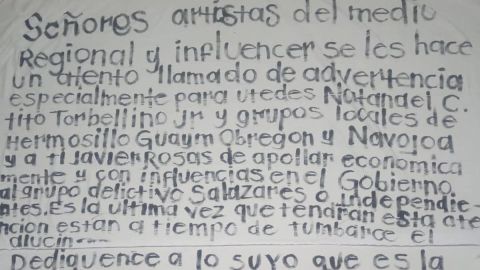 Señores artistas del medio
Regional y influencer se les hace
un atento llamado de advertencia
especialmente para utedes Natanael C.
tito Torbellino Jr y grupos locales de
Hermosillo Guaym Obregon y Navojoa
y a ti Javier Rosas de apollar economica
mente y con influencias en el Gobierno.
al grupo delictivo Salazares o independie-
ntes. Es la ultima vez que tendran esta ate
ncion estan a tiempo de tumbarce el
alucin----
Dediquence a lo suyo que es la